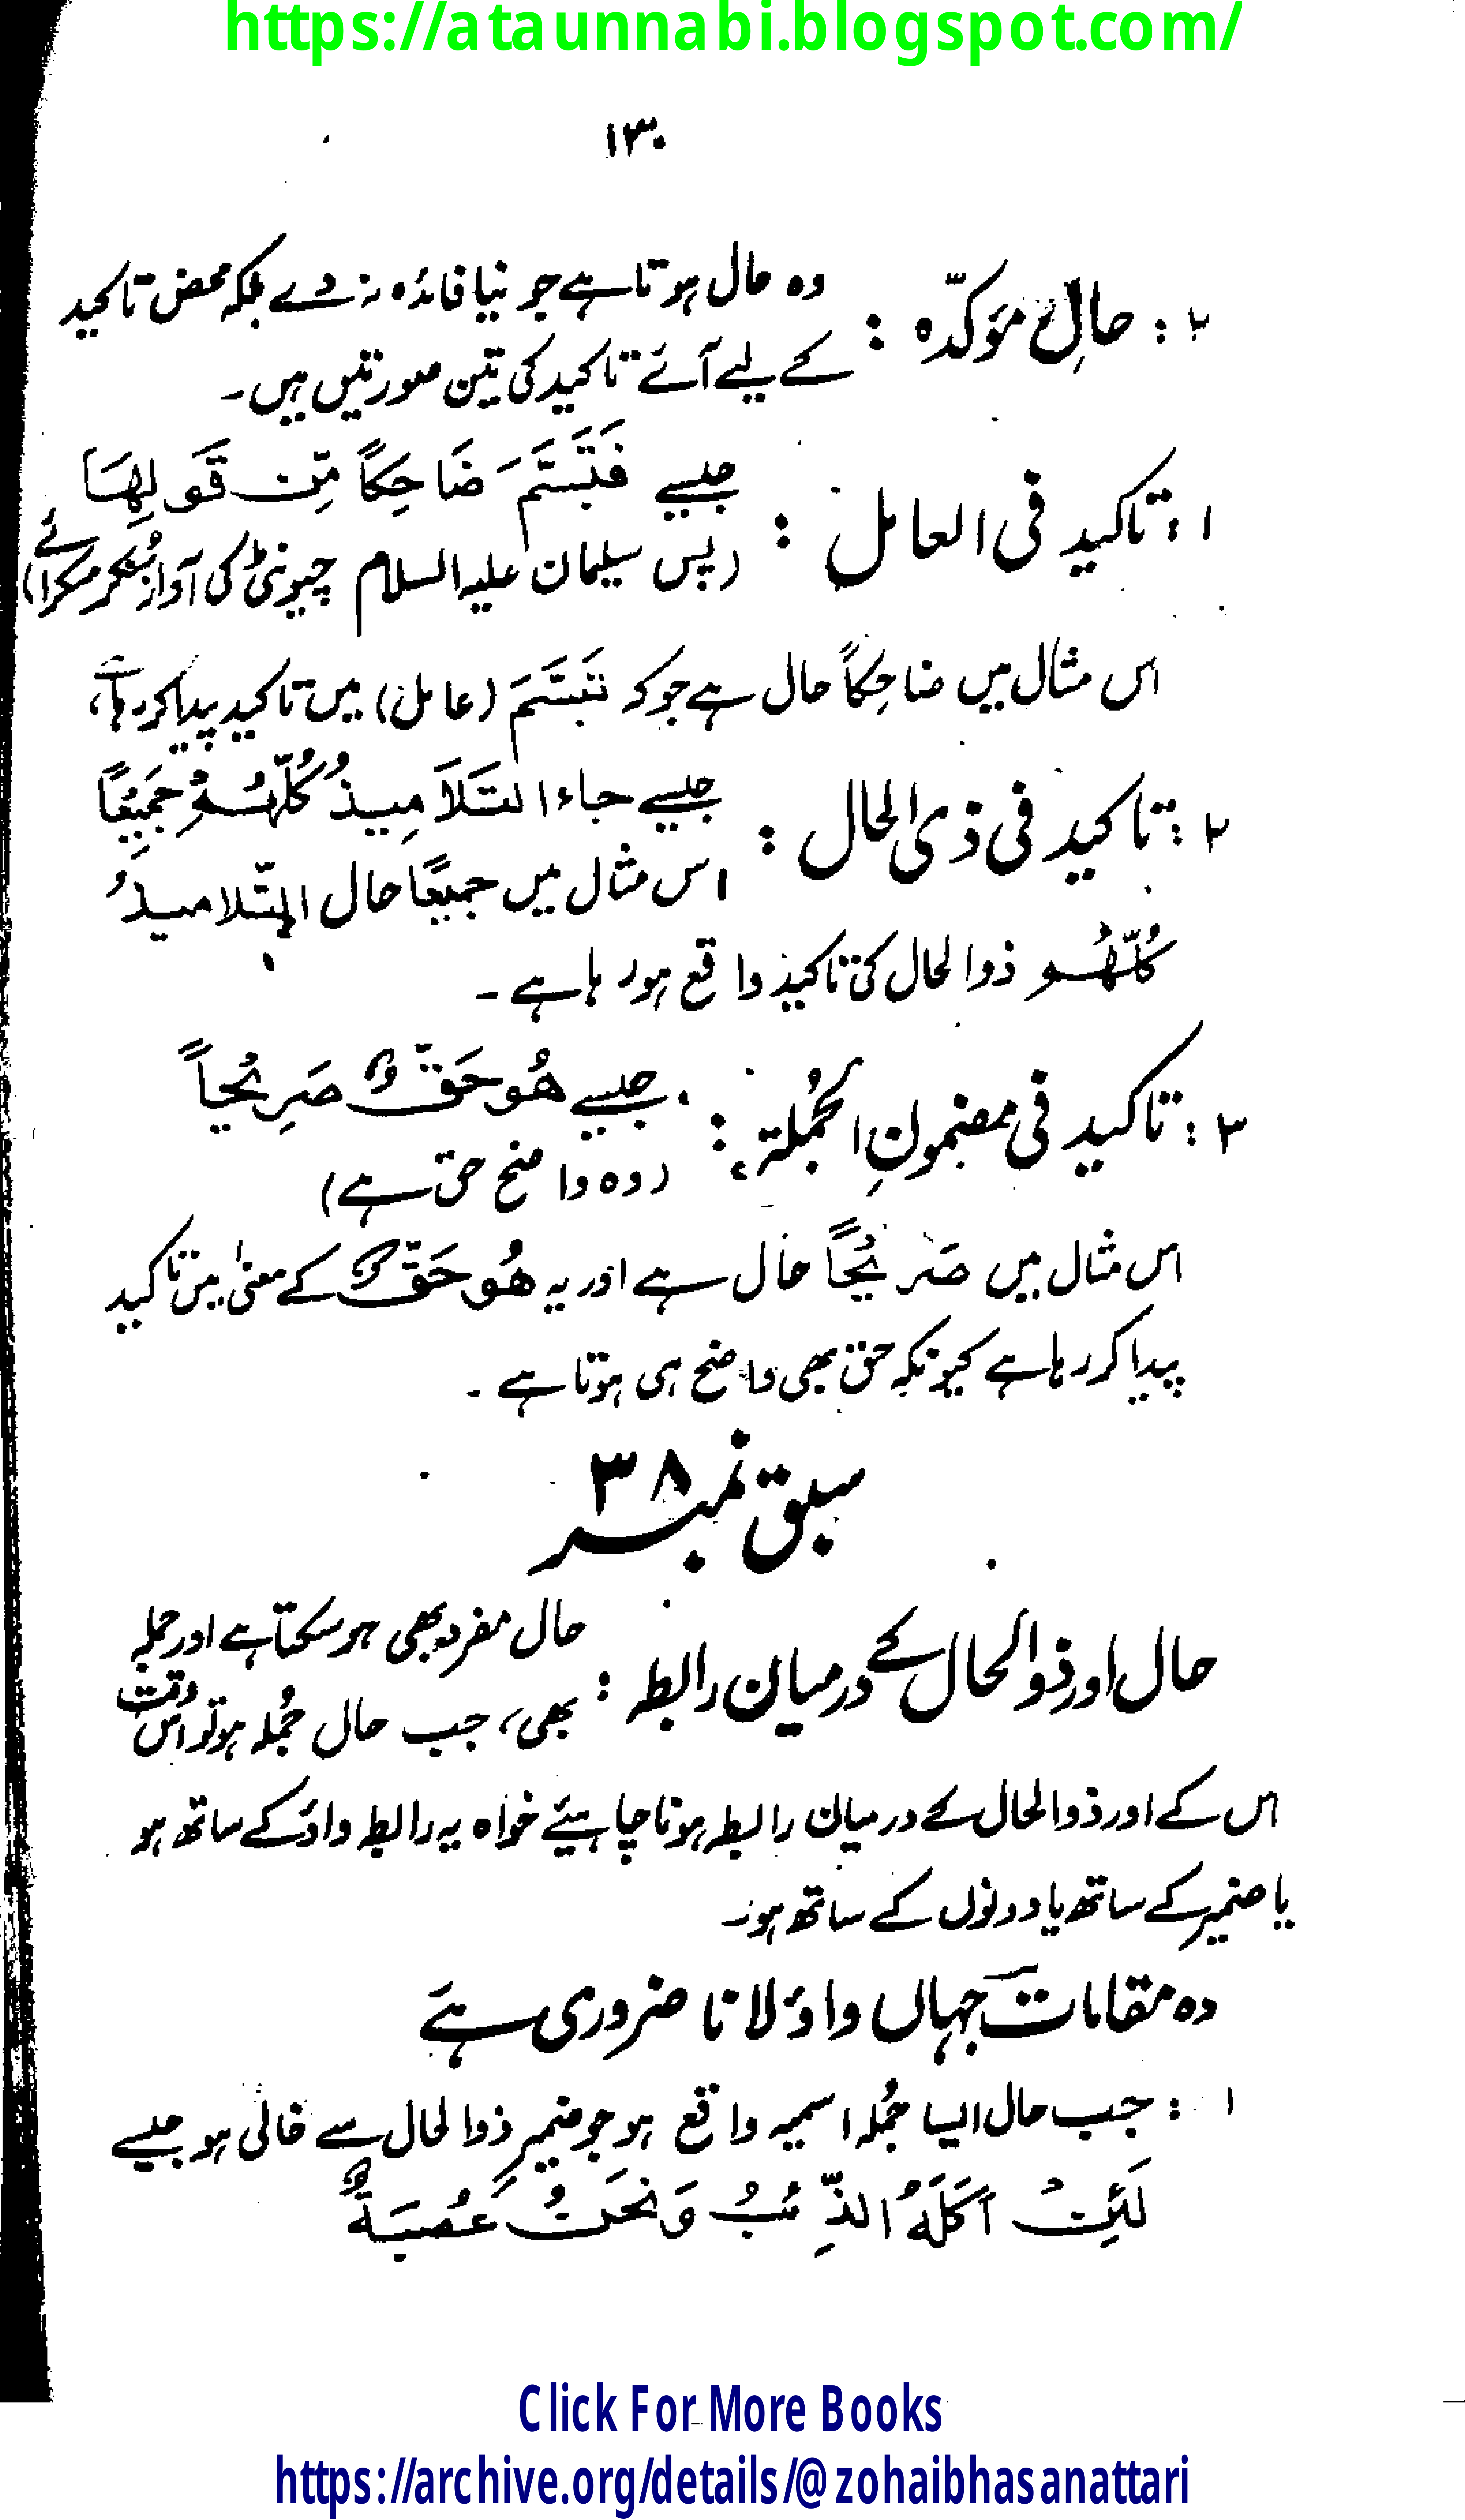 https://ataunnabi.blogspot.com/
۱۳۰
۲: حالِ مؤکدّہ : وہ حال ہوتا ہے جو نیا فائدہ نہ دے بلکہ محض تاکید
کے لیے آئے تاکید کی تین صورتیں ہیں۔
۱: تاکید فی العامل : جیسے فَتَبَسَّمَ ضَاحِكًا مِّن قَولِهَا
(پس سلیمان علیہ السلام چیونٹی کی آواز سُنکر مسکرائے)
اس مثال میں ضاحِکاً حال ہے جو کہ تَبَسَّمَ (عامل) میں تاکید پیدا کر رہا ہے،
۲: تاکید فی ذی الحال : جیسے جاء التَلَامِیذُ کُلُّهُمْ جَمِیْعًا
اس مثال میں جمیعًا حال التّلامیذُ
کُلّهُم ذوالحال کی تاکید واقع ہو رہا ہے۔
۳: تاکید فی مضمونِ الجُملة : جیسے هُو حَقٌّ صَرِیْحاً
(وہ واضح حق ہے)
اس مثال میں صَرِیْحاً حال ہے اور یہ هُو حَقٌّ کے معنیٰ میں تاکید
پیدا کر رہا ہے کیونکہ حق بھی واضح ہی ہوتا ہے۔
سبق نمبر ۳۸
حال اور ذوالحال کے درمیان رابطہ : حال مفرد بھی ہو سکتا ہے اور جملہ
بھی، جب حال جُملہ ہو تو اس وقت
اس کے اور ذوالحال کے درمیان رابطہ ہونا چاہیئے خواہ یہ رابطہ واؤ کے ساتھ ہو
یا ضمیر کے ساتھ یا دونوں کے ساتھ ہو۔
وہ مقامات جہاں واؤ لانا ضروری ہے
۱: جب حال ایسا جُملہ اسمیہ واقع ہو جو ضمیرِ ذوالحال سے خالی ہو جیسے
لَئِنْ اَکَلَهُ الذِّئبُ وَنَحنُ عُصبَةٌ
Click For More Books
https://archive.org/details/@zohaibhasanattari